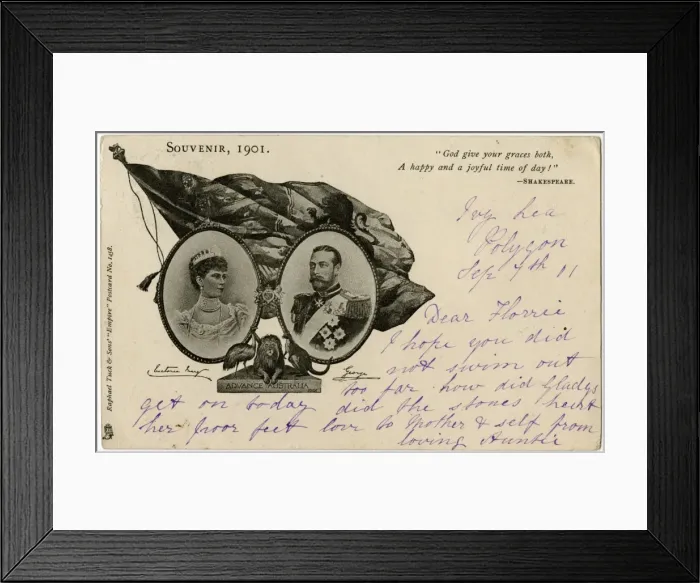 SOUVENIR, 1901.
"God give your graces both,
A happy and a joyful time of day!"
—SHAKESPEARE.
Raphael Tuck & Sons' "Empire" Postcard No. 1498.
Victoria Mary
George
ADVANCE AUSTRALIA
Ivy Lea
Polygon
Sep 4th 11
Dear Florrie
I hope you did
not swim out
too far how did Gladys
get on today did the stones hurt
her poor feet love to Mother & self from
loving Auntie